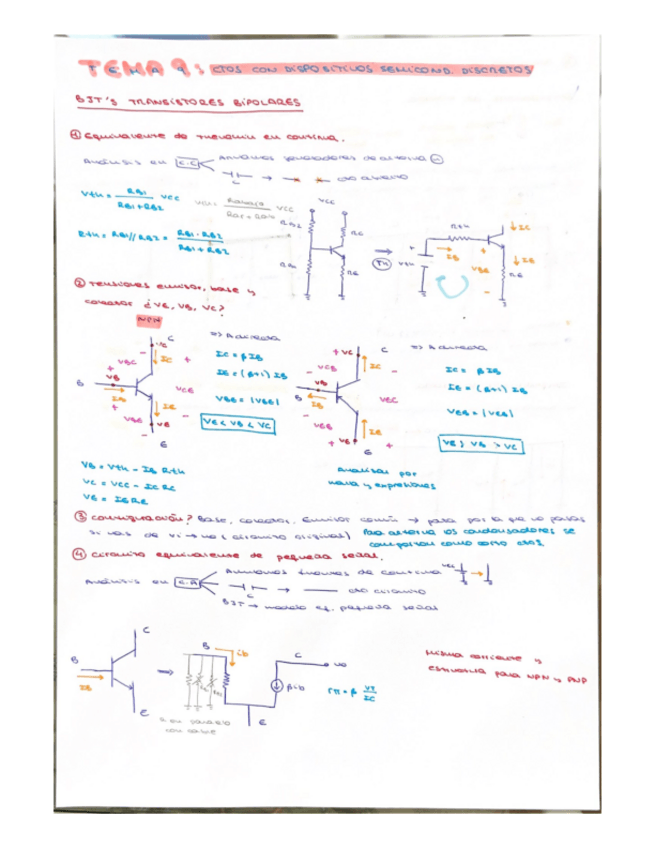 TEMA 9: CTOS CON DISPOSITIVOS SEMICOND. DISCRETOS
BJT'S TRANSISTORES BIPOLARES
① Equivalente de thevenin en continua.
Análisis en C.C. Anulamos generadores de alterna
C → cto abierto
Vth = RB1 / RB1+RB2 VCC
VCC
Rth = RB1//RB2 = RB1·RB2 / RB1+RB2
VCC
RB2
RC
RE
→
Th
+
Vth
-
Rth
IB
+
VBE
-
IC
IE
RE
② tensiones emisor, base y
colector ¿VE, VB, VC?
NPN
C
VC
IC
VBC
VB
B
IB
VCE
VBE
IE
VE
E
IC = β IB
IE = (β+1) IB
VBE = |VBE|
VE < VB < VC
C
VC
IC
VCB
VB
B
IB
VEC
VEB
IE
VE
E
IC = β IB
IE = (β+1) IB
VEB = |VEB|
VE > VB > VC
VB = Vth - IB Rth
VC = VCC - IC RC
VE = IE RE
Analizar por
malla y expresiones
③ configuración? Base, colector, emisor común → pata por la que no pasas
si vas de vi → vo (circuito original) Para alterna los condensadores se
comportan como corto ctos.
④ circuito equivalente de pequeña señal.
Análisis en C.A Anulamos fuentes de continua VCC →
C → cto circuito
BJT → modelo eq. pequeña señal
B
IB
C
E
→
B
ib
C
vo
βib
E
rπ = β VT / IC
Misma corriente y
estructura para NPN y PNP
R en paralelo
con base